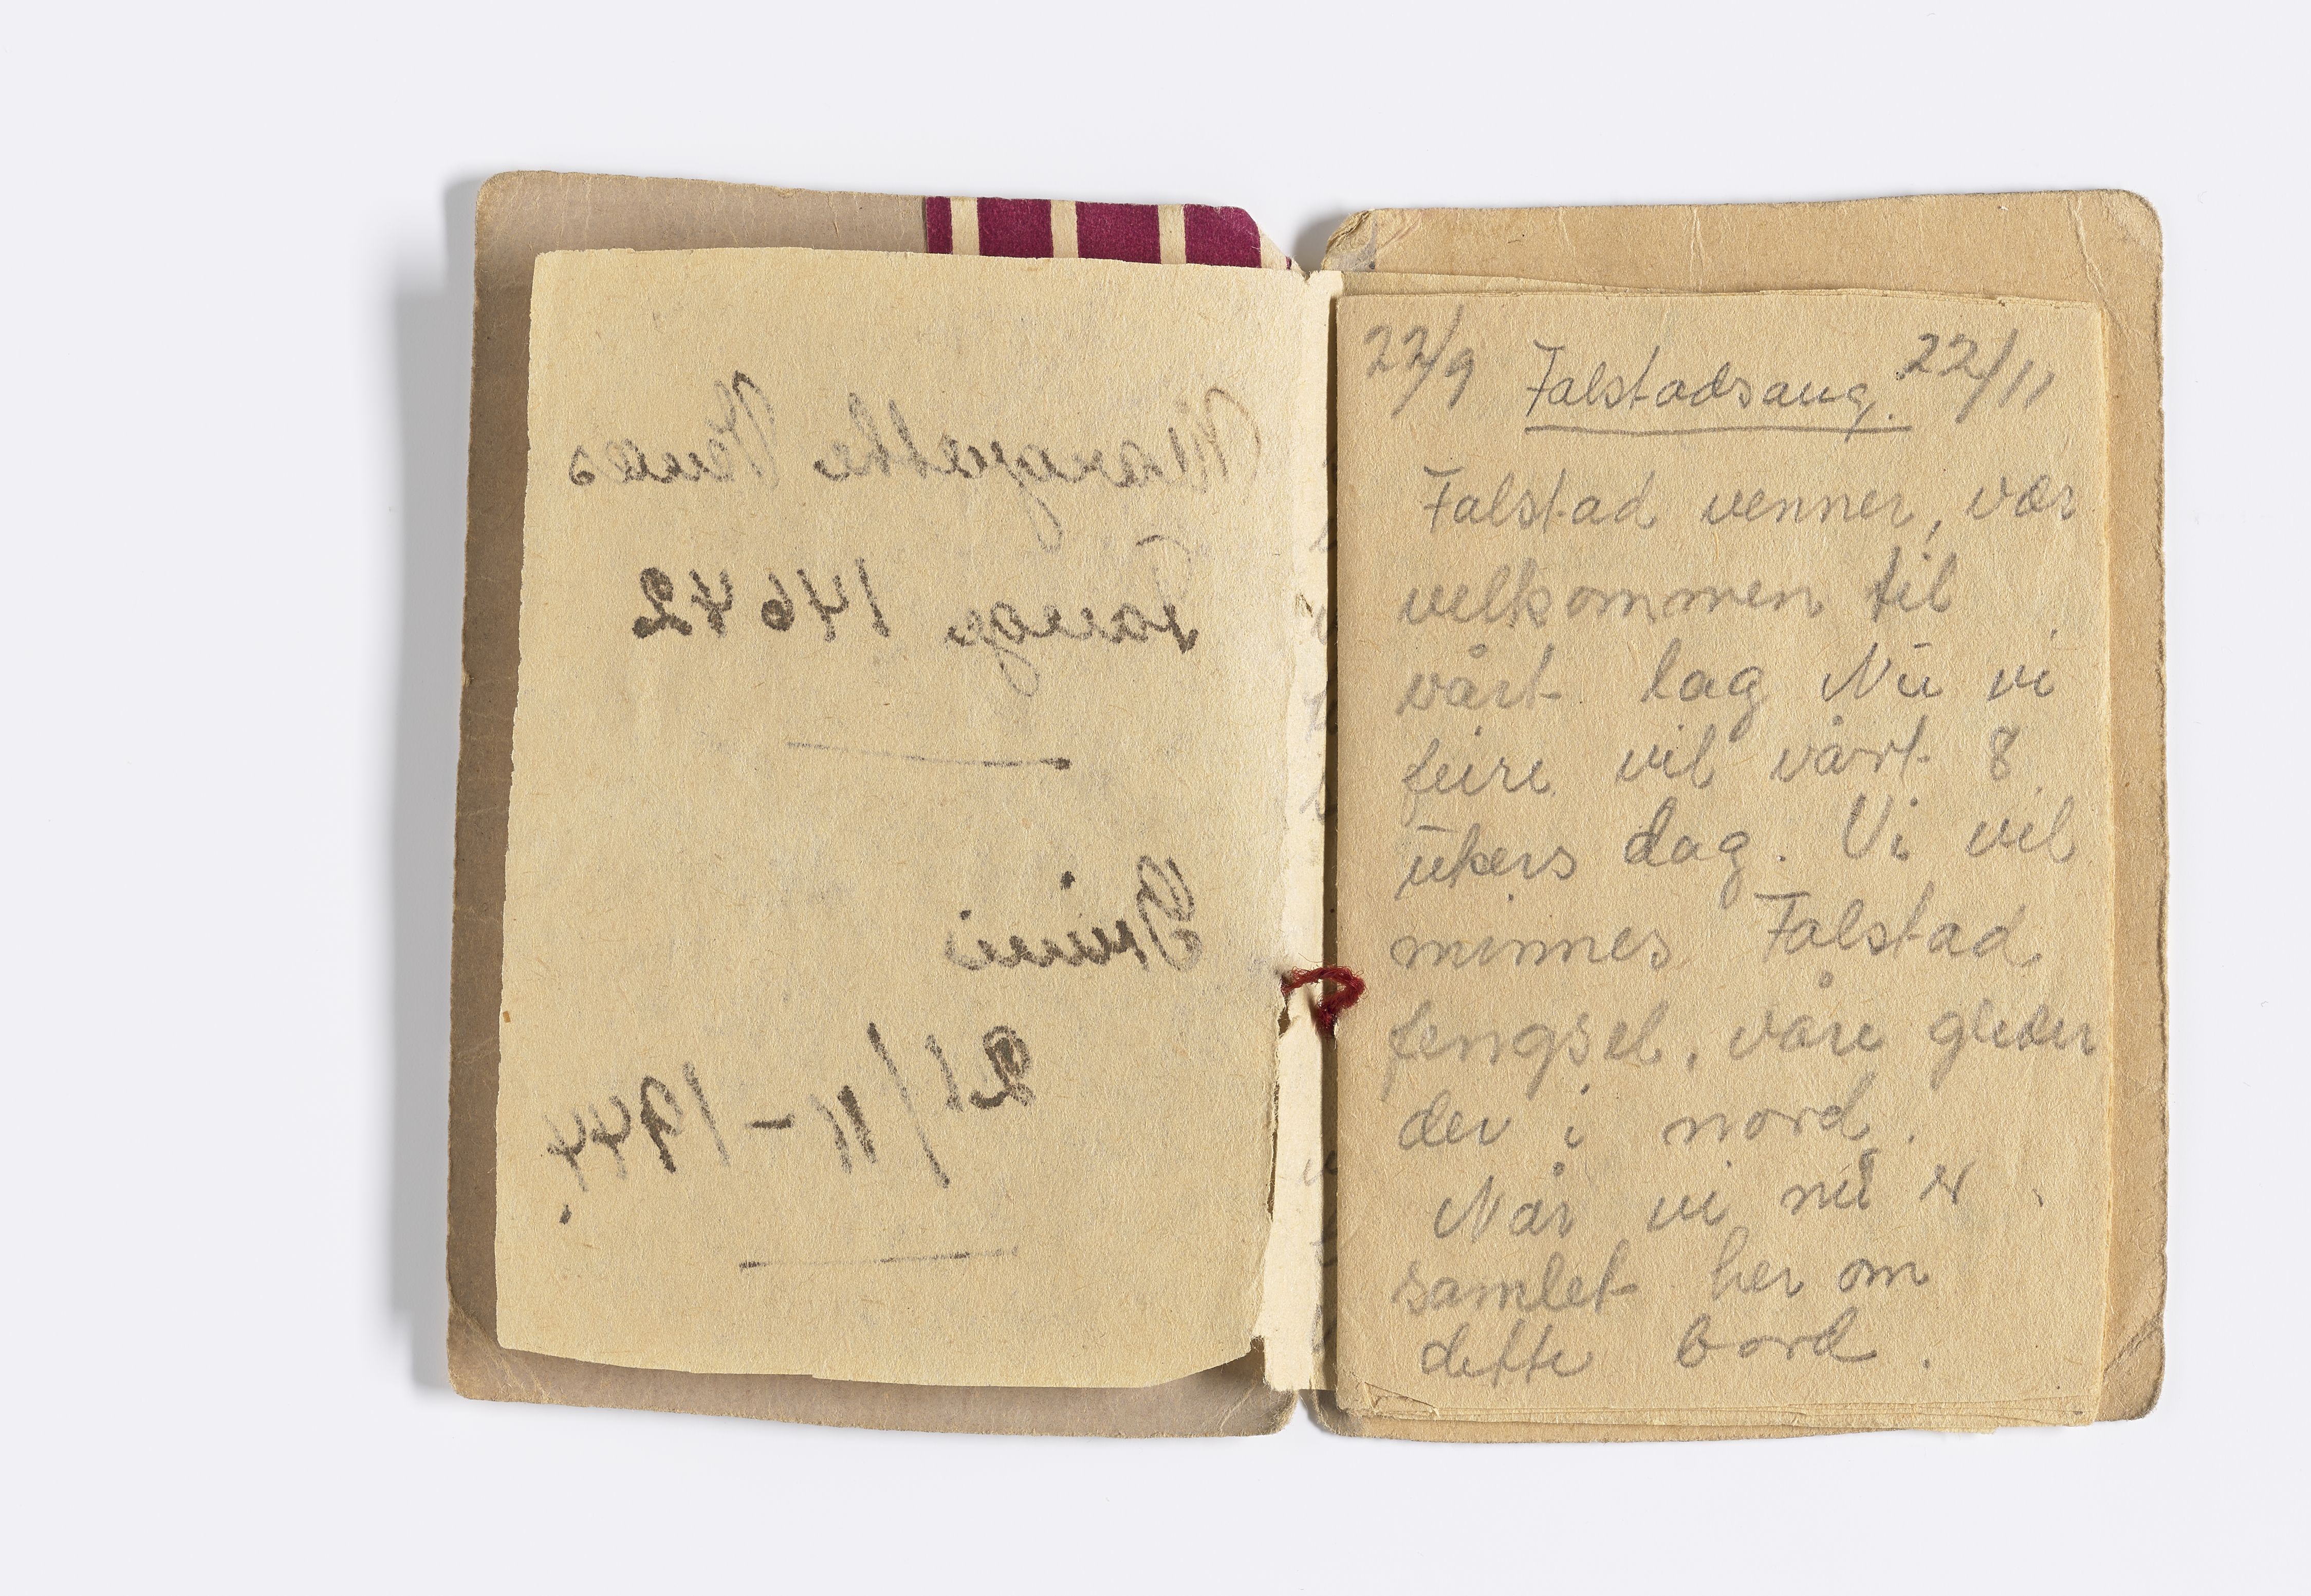 Margrethe
Fange
Grini
21/11-1944.
22/9 Falstadsang. 22/11
Falstad venner, vær
velkommen til
vårt lag Nŭ vi
feire vil vårt 8
ŭkers dag. Vi vil
minnes Falstad
fengsel, våre gleder
der i nord.
Når vi nŭ er
samlet her om
dette bord.